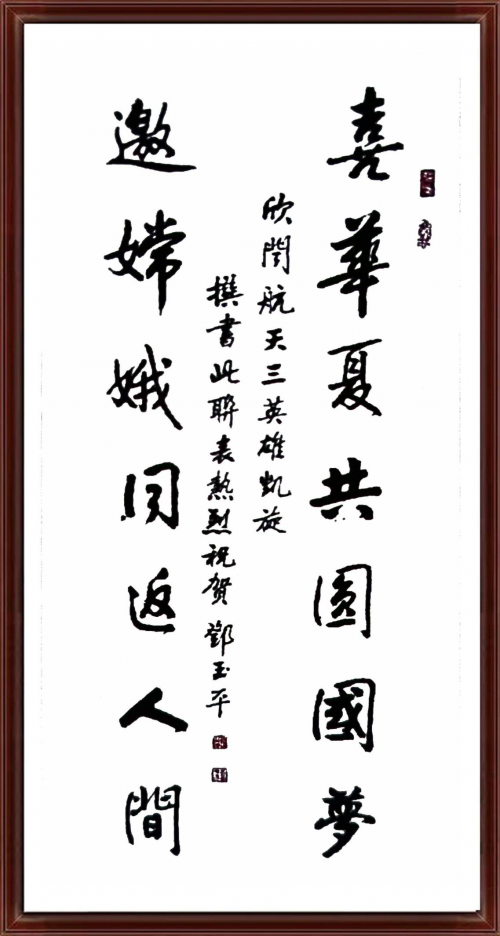 喜華夏共圓國夢
欣聞航天三英雄凱旋
撰書此聯表熱烈祝賀 鄧玉平
邀嫦娥同返人間